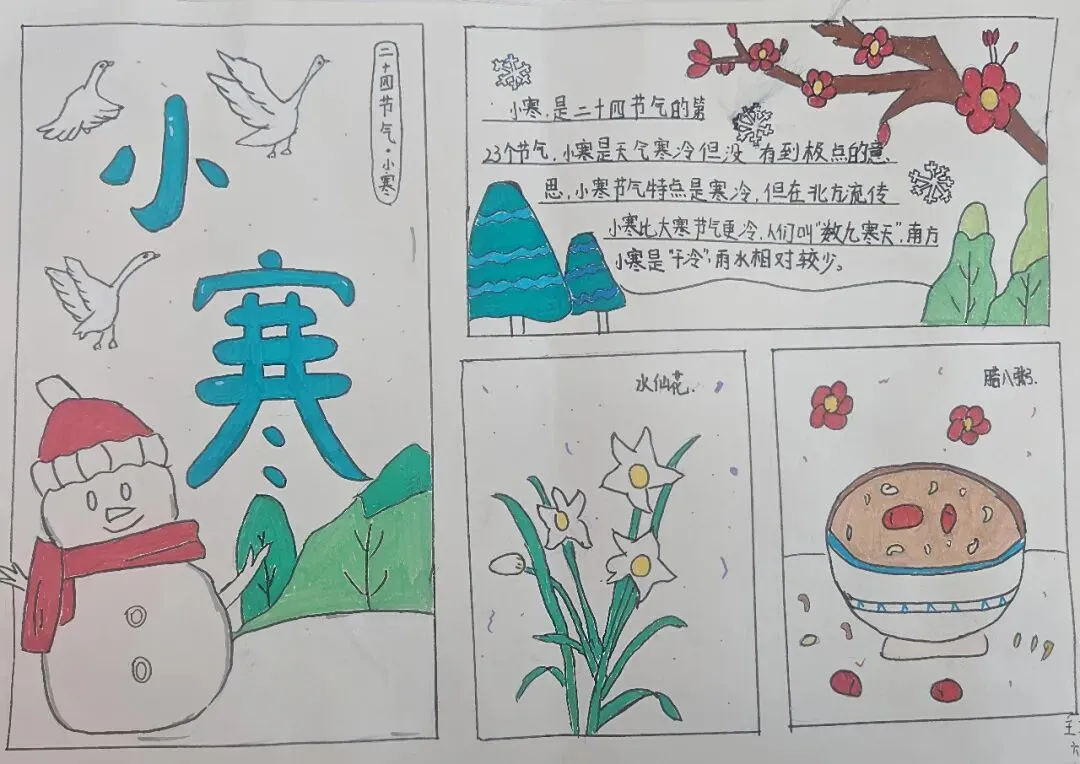 小
寒
二十四节气·小寒
小寒,是二十四节气的第
23个节气,小寒是天气寒冷但没有到极点的意
思,小寒节气特点是寒冷,但在北方流传
小寒比大寒节气更冷,人们叫"数九寒天",南方
小寒是"干冷",雨水相对较少。
水仙花.
腊八粥.